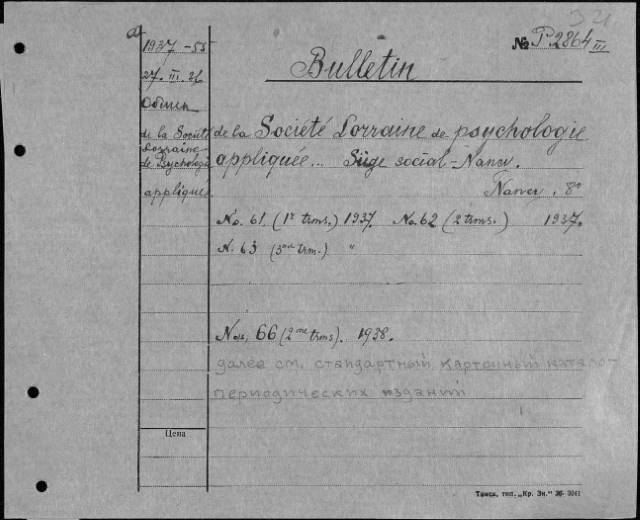 1937-55
№ P.2864 III
27.III.
Bulletin
Обмен
de la Société Lorraine de Psychologie appliquée
de la Société Lorraine de psychologie
appliquée... Siège social-Nancy.
Nancy, 8°
No. 61, (1er trms.) 1937. No. 62 (2 trms.) 1937.
N. 63 (3me trm.) "
Nos, 66 (2me trms). 1938.
далее см. стандартный карточный каталог
периодических изданий
Цена
Томск, тип. „Кр. Зн."